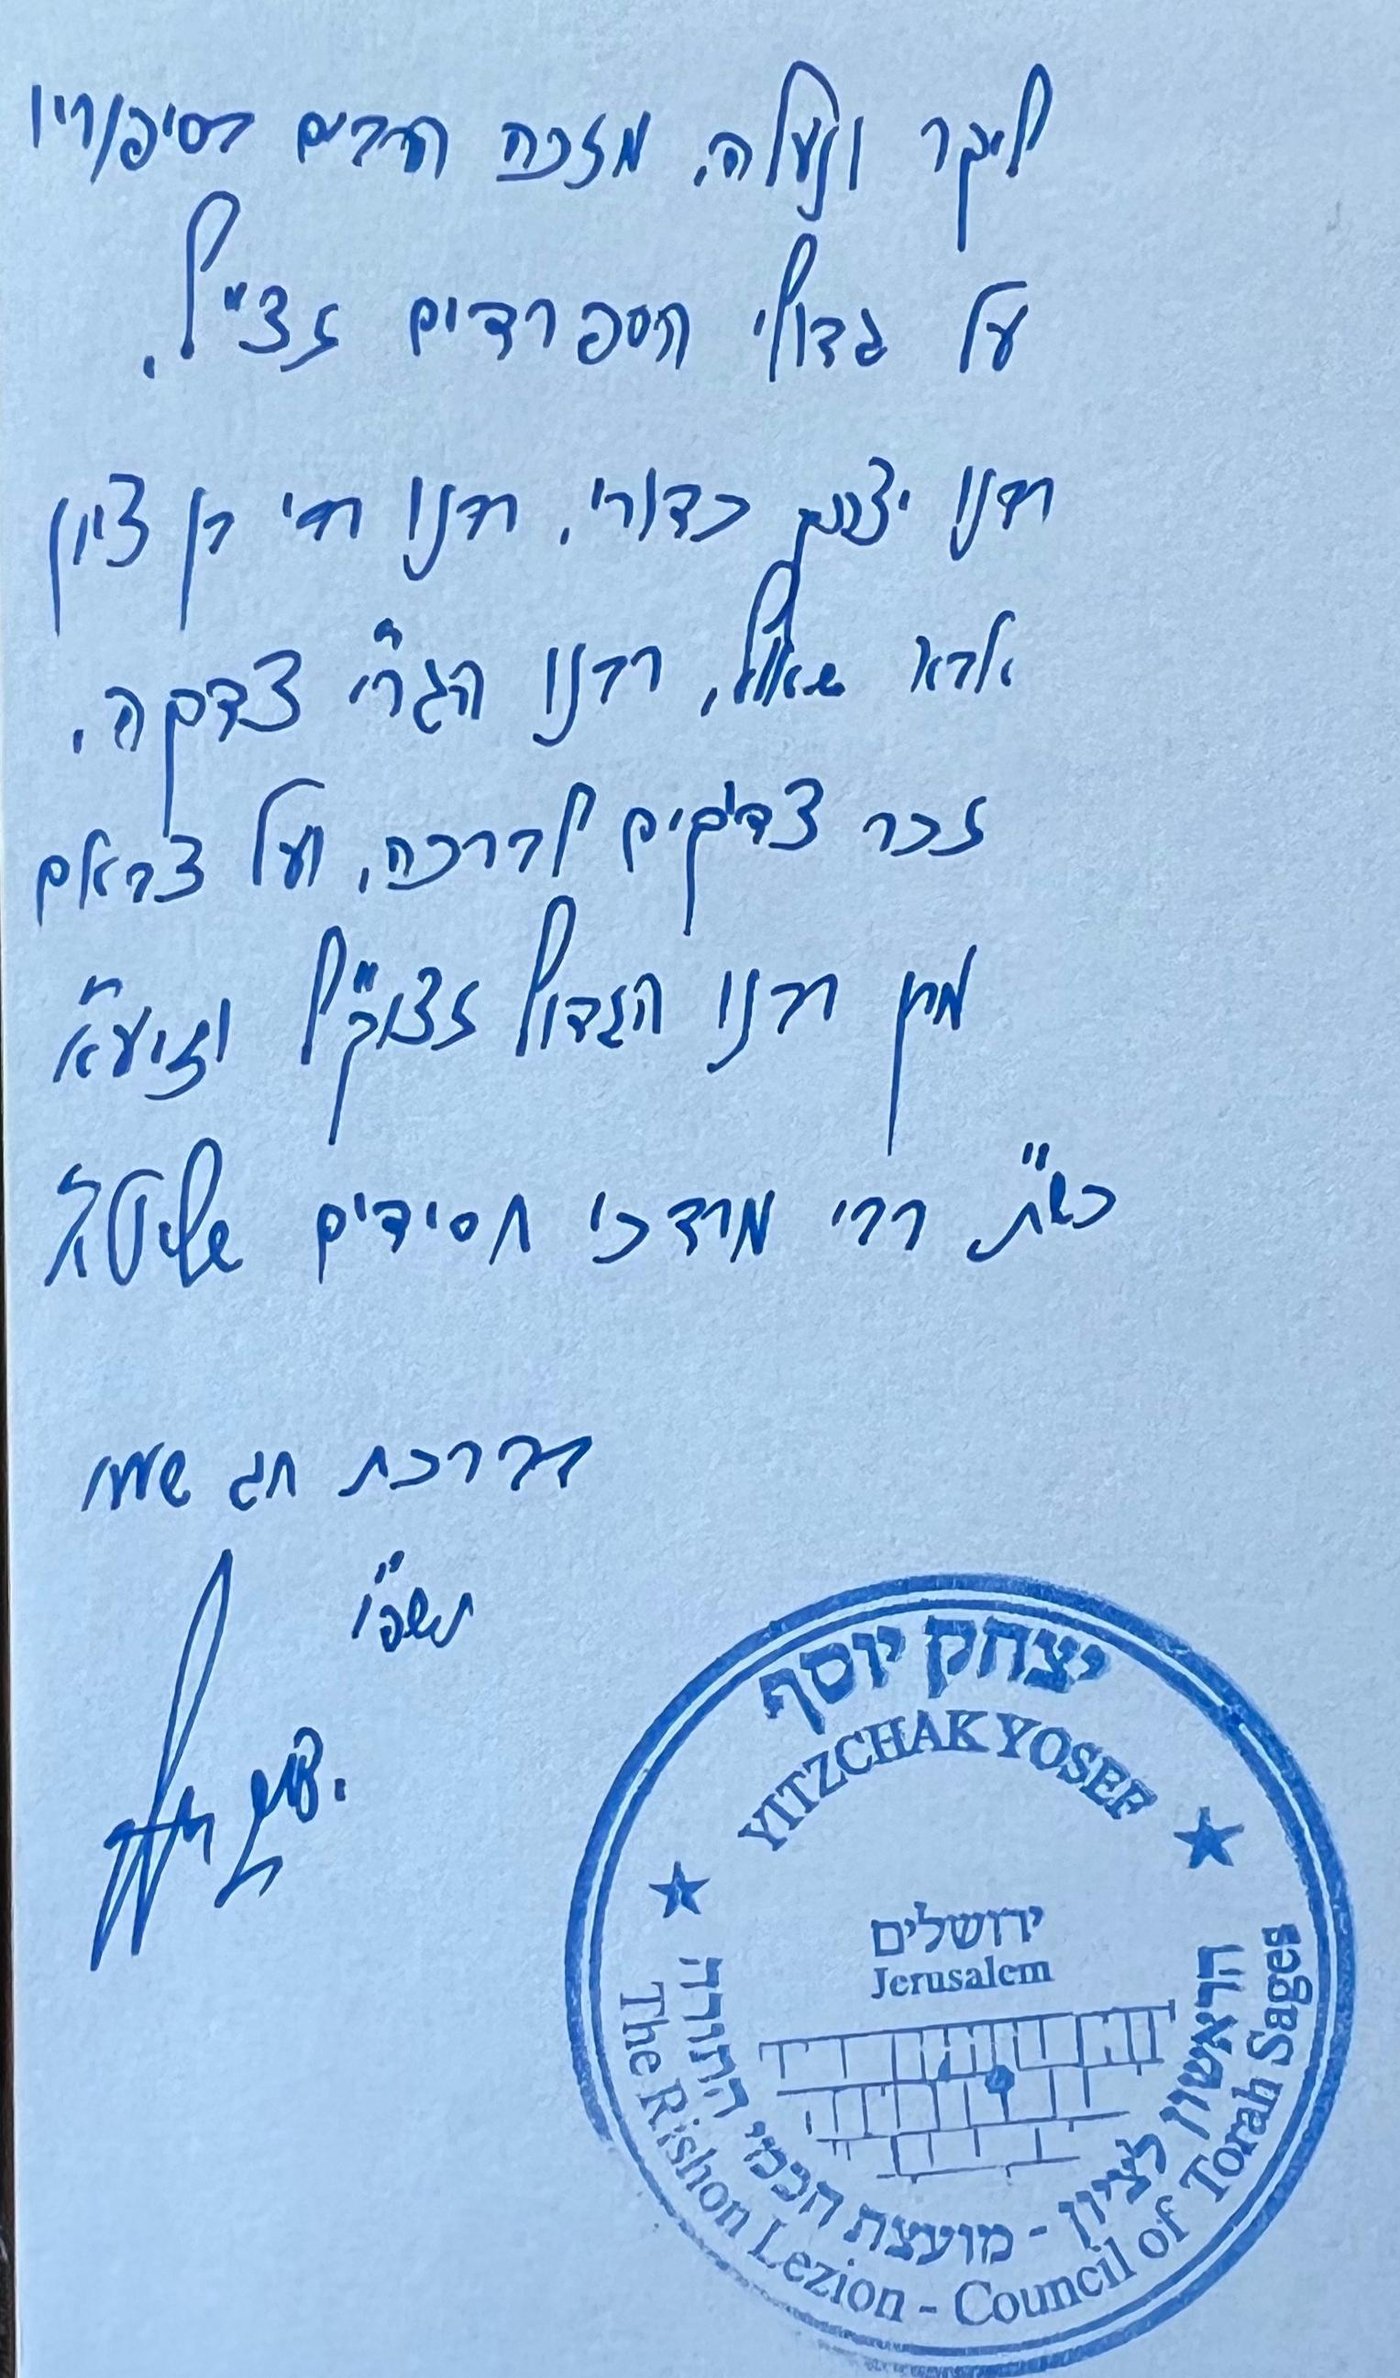 ליקר ונעלה, מזכה הרבים בסיפוריו
על גדולי הספרדים זצ"ל,
רבנו יצחק כדורי, רבנו בן ציון
אבא שאול, רבנו הגר"י צדקה,
זכר צדיקים לברכה, ועל צבאם
מרן רבנו הגדול זצוק"ל וזיע"א
כש"ת רבי מרדכי חסידים שליט"א
בברכת חג שמח
תשפ"ו
יצחק יוסף
יצחק יוסף
YITZCHAK YOSEF
ירושלים
Jerusalem
הראשון לציון - מועצת חכמי התורה
The Rishon Lezion - Council of Torah Sages